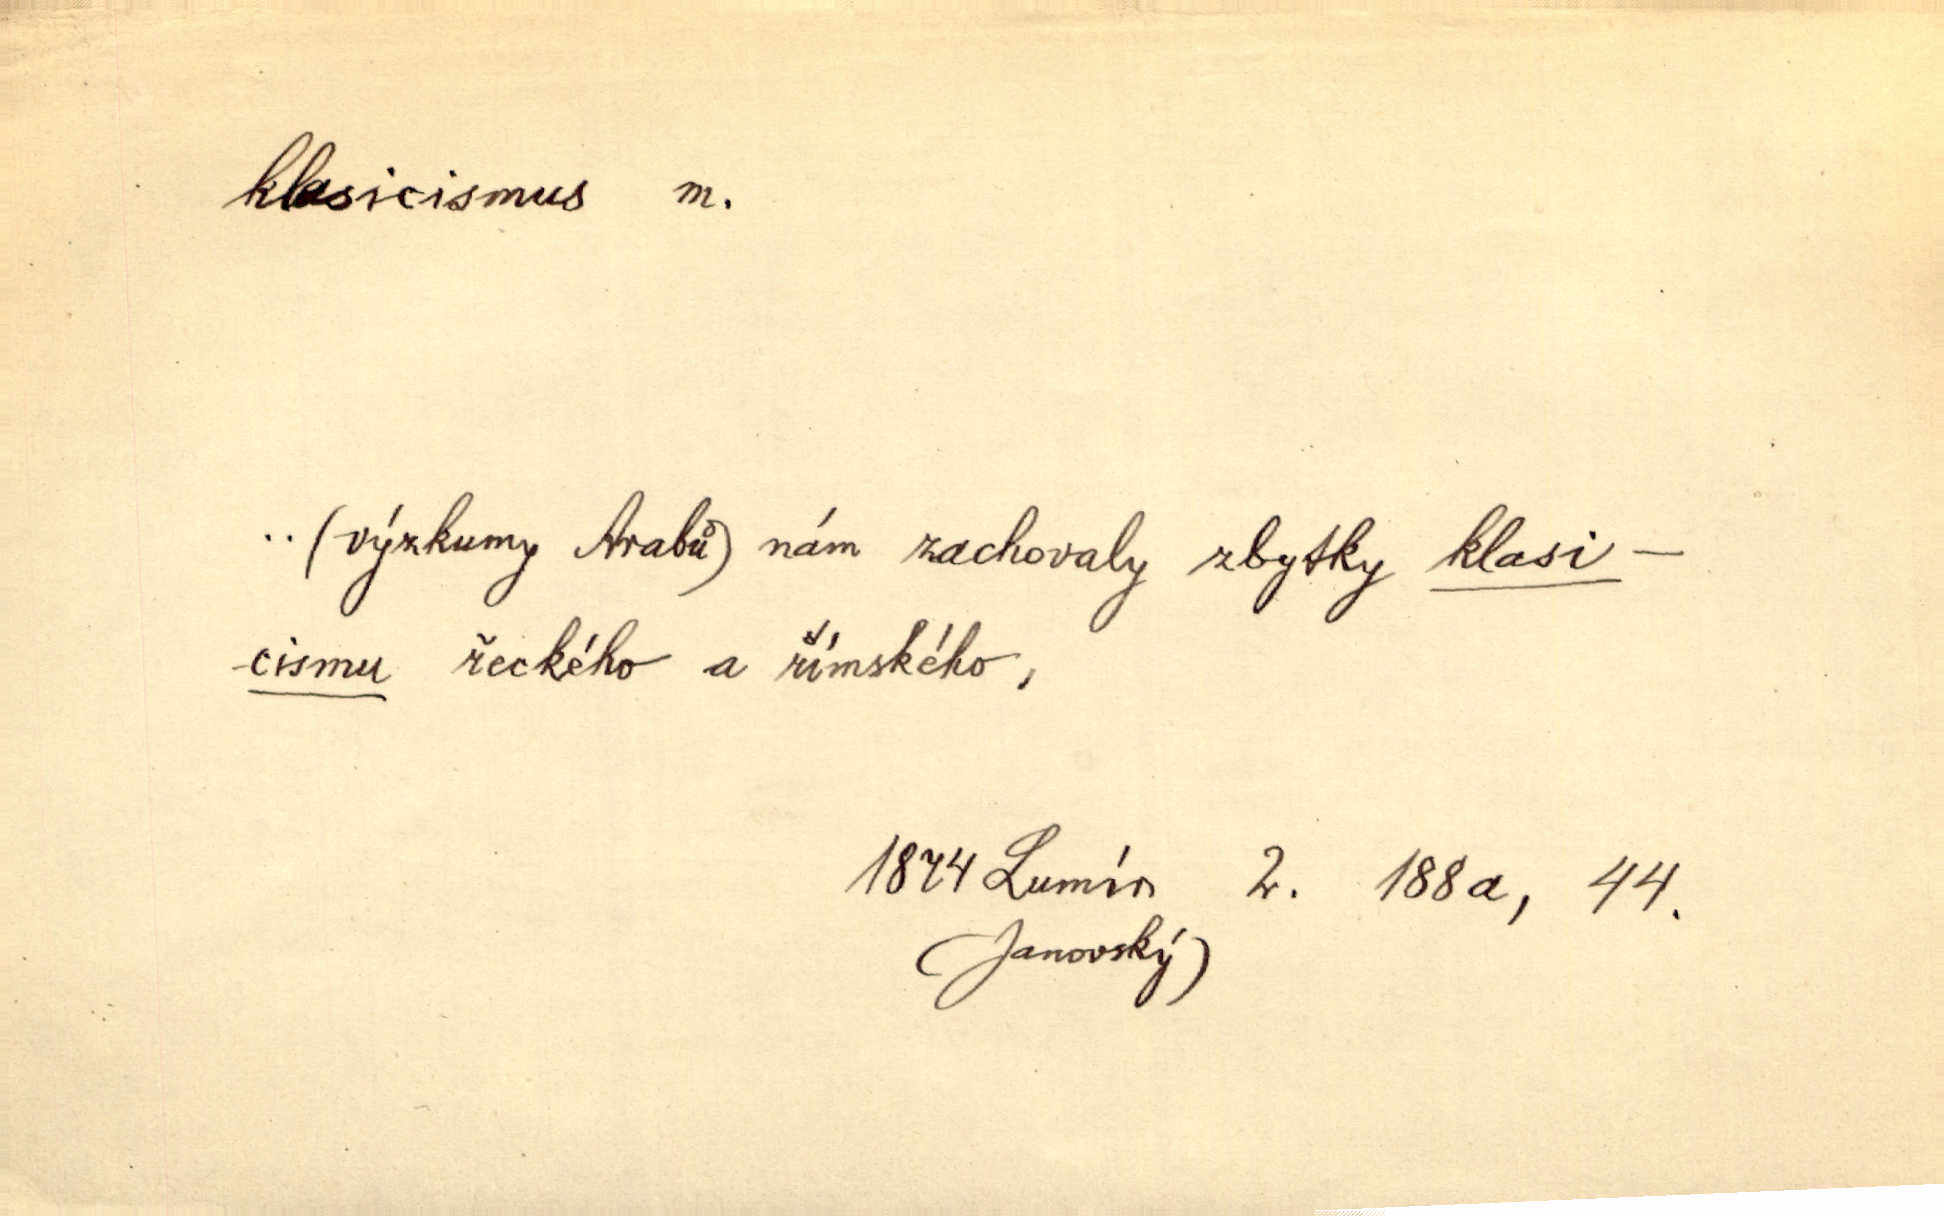 klasicismus m.
..(výzkumy Arabů) nám zachovaly zbytky klasi-
-cismu řeckého a římského,
1874 Lumír 2. 188a, 44.
(Janovský)